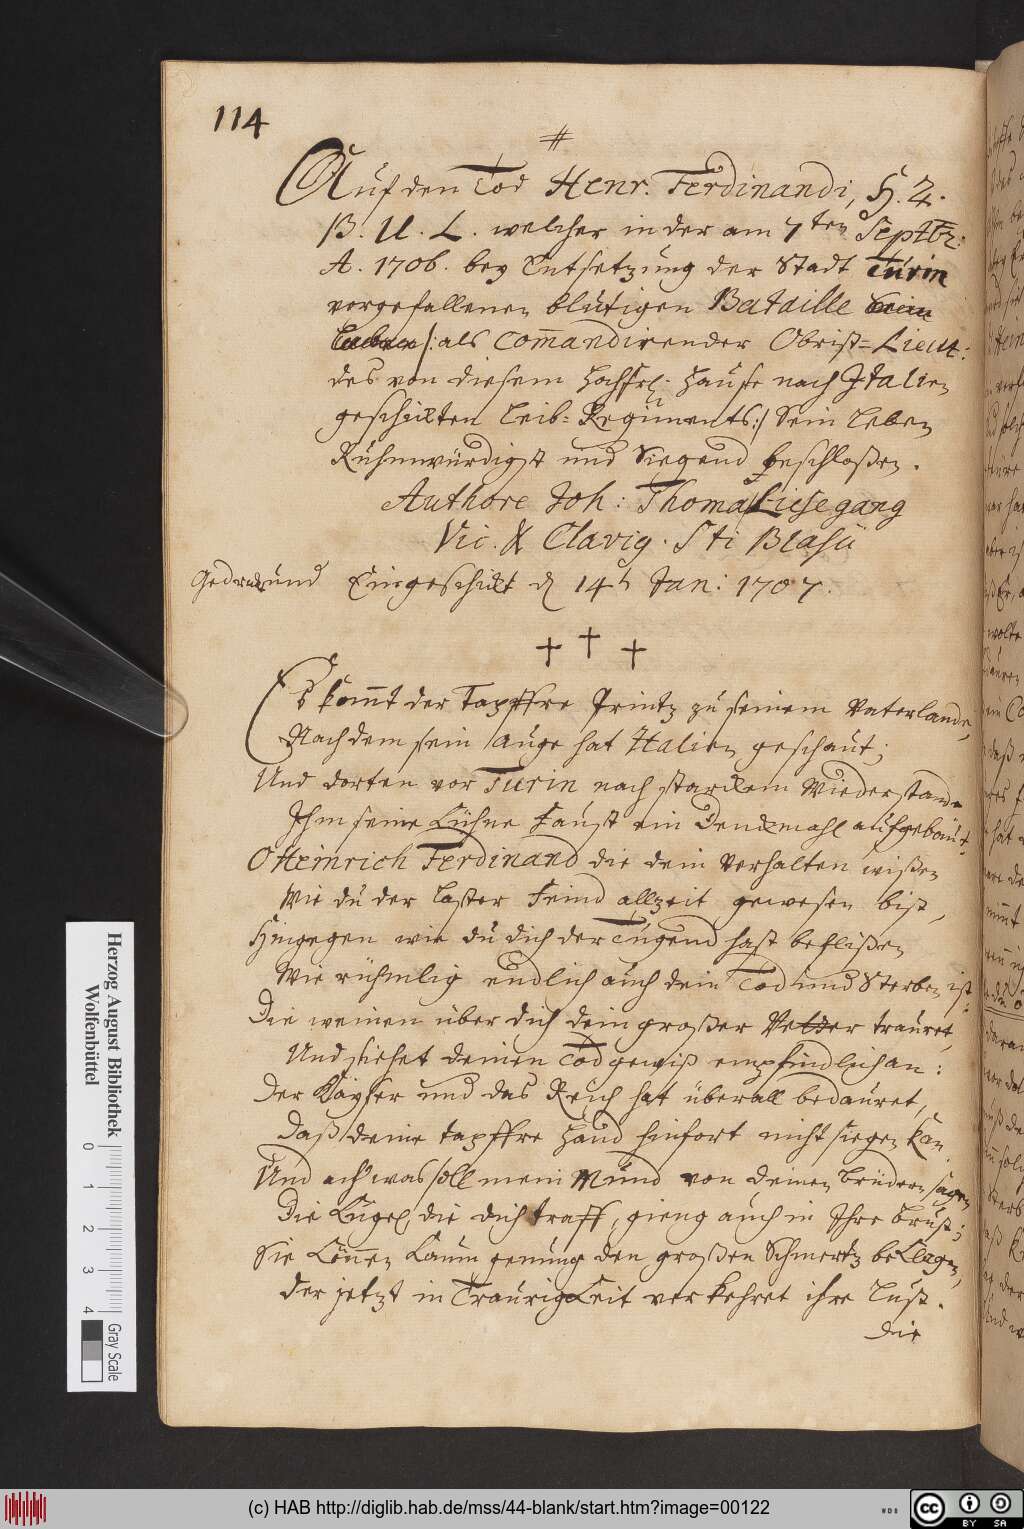 114
#
Auf den Tod Henr. Ferdinandi, H. Z.
B. U. L. welcher in der am 7ten Septbr:
A. 1706. bey Entsetzung der Stadt Turin
vorgefallenen blutigen Bataille
/: als Com̄andirender Obrist=Lieut:
des von diesem Hochfrl. Hause nach Italien
geschickten Leib=Regiments :/ Sein Leben
Rühmwürdigst und Siegend beschloßen.
Authore Joh: Thoma Liesegang
Vic. & Clavig. Sti Blasii
Gedruckt und Eingeschickt d 14t Jan: 1707.
Es kom̄t der Tapffre Printz zu seinem Vaterlande,
Nachdem sein Auge hat Italien geschaut;
Und dorten vor Turin nach starckem Wiederstande
Ihm seine Kühne Faust ein Denckmahl aufgebaut.
O Heinrich Ferdinand die dein Verhalten wißen
Wie du der Laster Feind allzeit gewesen bist,
Hingegen wie du dich der Tugend hast beflißen
Wie rühmlig endlich auch dein Tod und Sterben ist.
Die weinen über dich dein großer Vetter trauret,
Und siehet deinen Tod gewiß empfindlich an:
Der Käyser und das Reich hat überall bedauret,
Daß deine tapffre Hand hinfort nicht siegen kan.
Und ach was soll mein Mund von deinen Brüdern sagen
Die Kugel, die dich traff, gieng auch in Ihre Brust;
Sie Kön̄en Kaum genung den großen Schmertz beklagen,
Der jetzt in Traurigkeit verkehret ihre Lust.
Die
Herzog August Bibliothek
Wolfenbüttel
0 1 2 3 4 Gray Scale
(c) HAB http://diglib.hab.de/mss/44-blank/start.htm?image=00122
WDB
cc BY SA